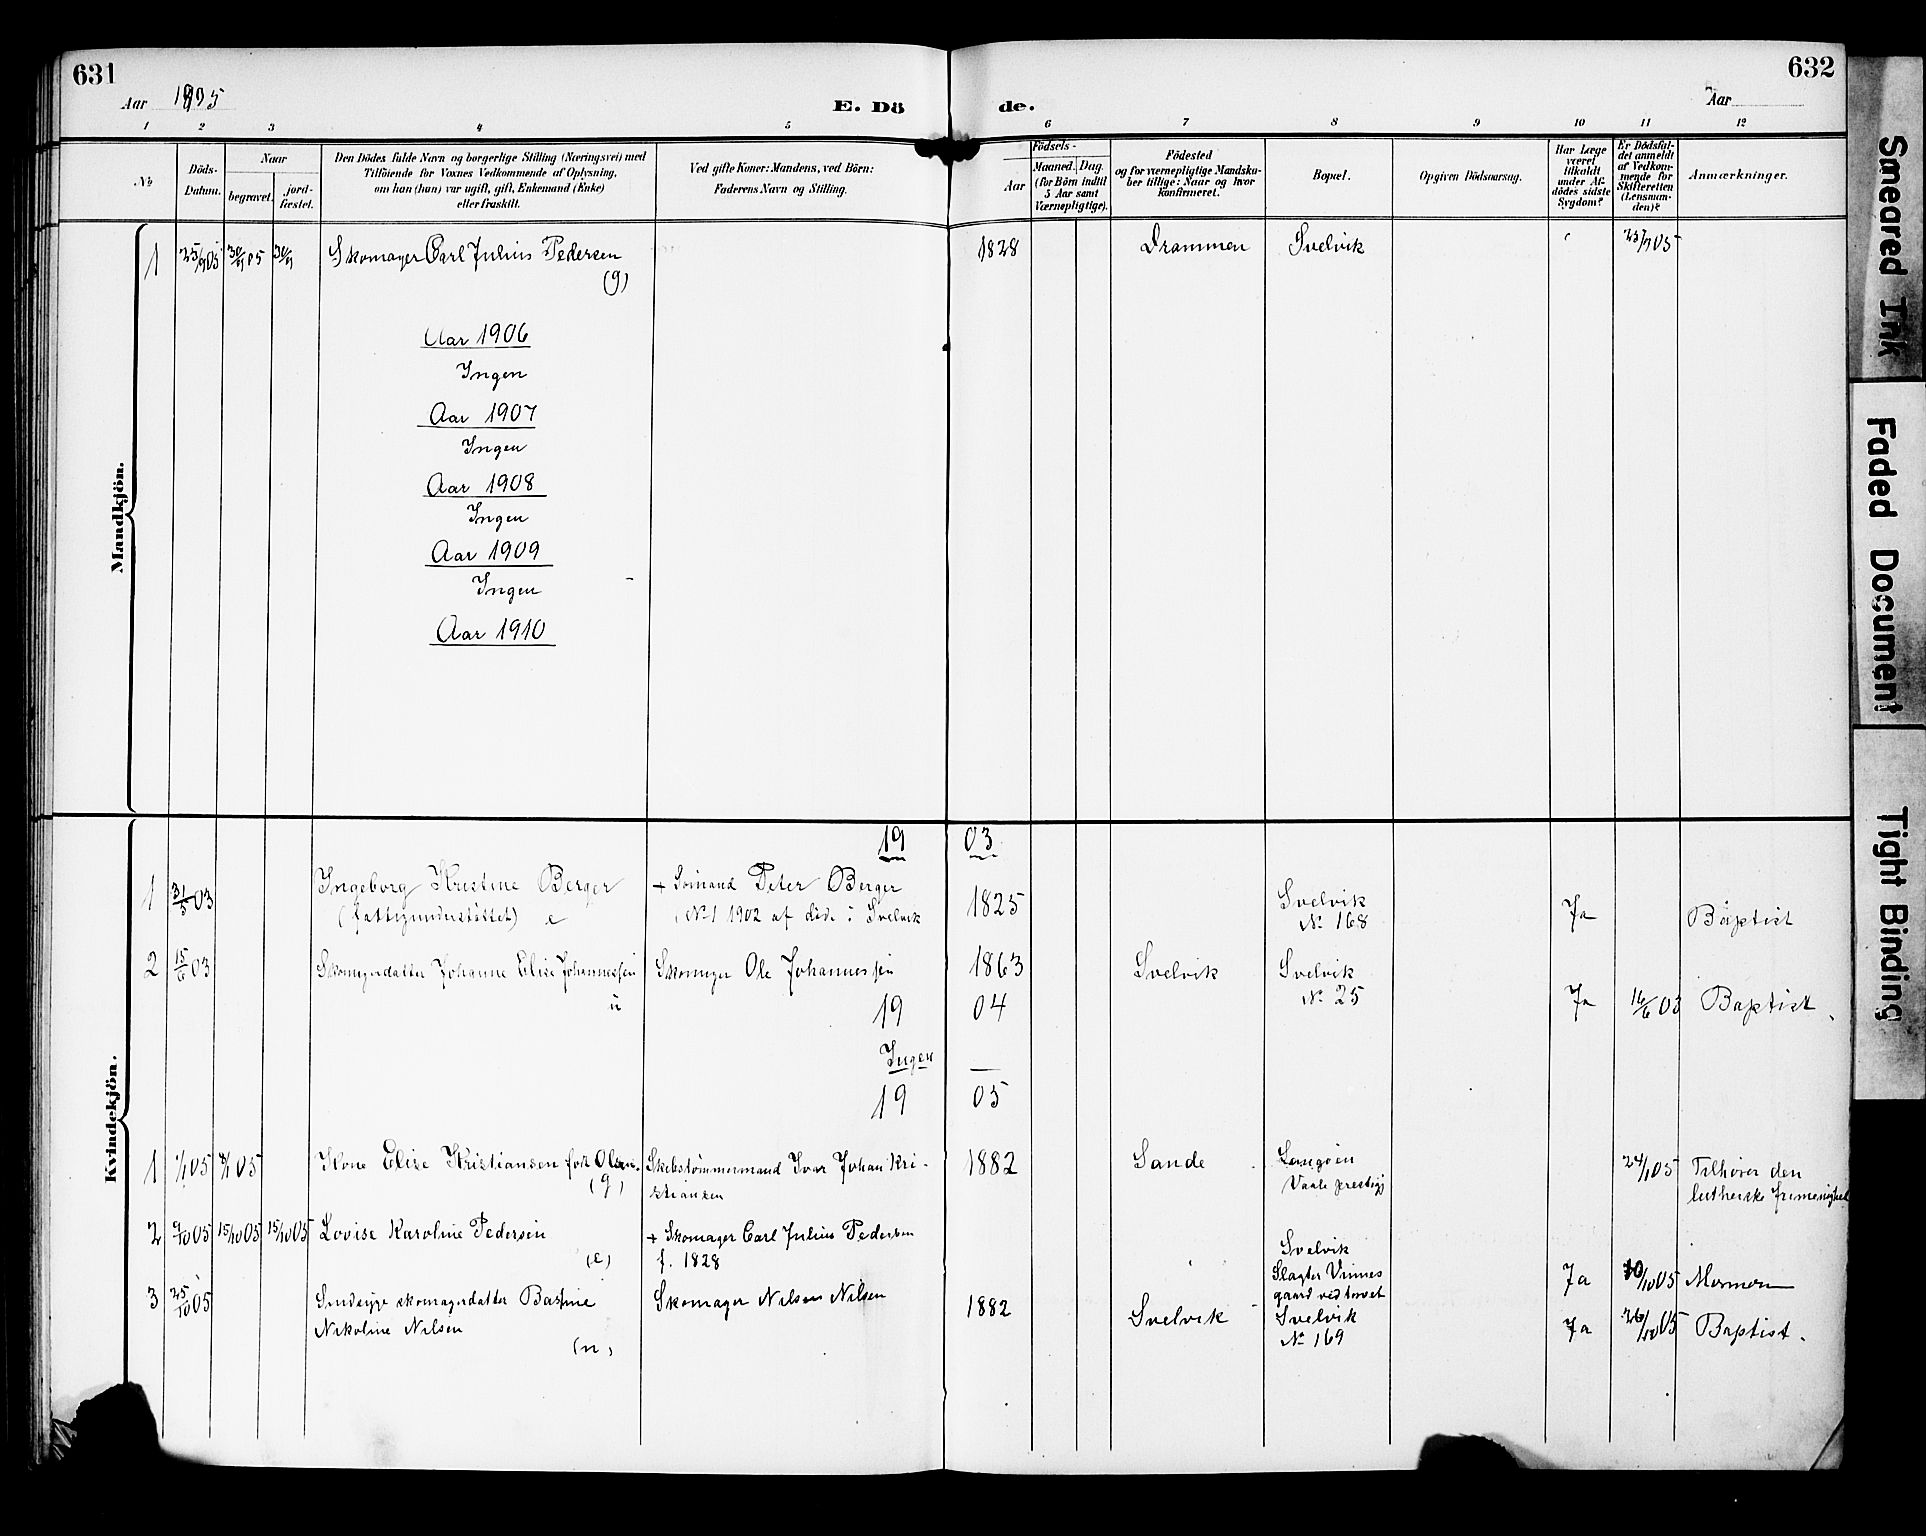 631
632
Aar 1905
E. Döde.
Aar
1 2 3 4 5 6 7 8 9 10 11 12
No
Döds-
Datum.
Naar
begravet.
jord-
fæstet.
Den Dödes fulde Navn og borgerlige Stilling (Næringsvei) med
Tilföiende for Voxnes Vedkommende af Oplysning,
om han (hun) var ugift, gift, Enkemand (Enke)
eller fraskilt.
Ved gifte Koner: Mandens, ved Börn:
Faderens Navn og Stilling.
Födsels-
Aar
Maaned.
Dag.
(for Börn indtil
5 Aar samt
Værnepligtige).
Födested
og for værnepligtige Mandska-
ber tillige: Naar og hvor
konfirmeret.
Bopæl.
Opgiven Dödsaarsag.
Har Læge
været
tilkaldt
under Af-
dödes sidste
Sygdom?
Er Dödsfal-
det anmeldt
af Vedkom-
mende for
Skifteretten
(Lensman-
den)?
Anmærkninger.
Mandkjön.
1 25/9 05 30/9 05 30/9 Skomager Carl Julius Pedersen 1828 Drammen Svelvik 25/9 05
(g)
Aar 1906
Ingen
Aar 1907
Ingen
Aar 1908
Ingen
Aar 1909
Ingen
Aar 1910
Kvindekjön.
19 03
1 31/5 03 Ingeborg Kristine Berger + Sömand Peter Berger 1825 Svelvik Ja Baptist
(fattigunderstöttet) e (No 1 1902 af döde i Svelvik No 168
2 15/6 03 Skomagerdatter Johanne Elise Johannessen Skomager Ole Johannessen 1863 Svelvik Svelvik
u No 25 Ja 16/6 03 Baptist
19 04
Ingen —
19 05
1 1/1 05 8/1 05 Kone Elise Kristiansen föd Olsen. Skibstömmermand Ivar Johan Kri- 1882 Sande Langöen 24/1 05 Tilhörer den
(g) stiansen Vaale prestegj lutherske frimenighed
2 9/10 05 15/10 05 15/10 05 Lovise Karoline Pedersen + Skomager Carl Julius Pedersen Svelvik
(e) f. 1828 Slagter Vinnes Ja 10/10 05 Mormon
gaard ved torvet
3 25/10 05 Sindssyge skomagerdatter Bastine Skomager Nilsen Nilsen 1882 Svelvik Svelvik Ja 26/10 05 Baptist.
Nikoline Nilsen No 169
(u)
Smeared Ink
Faded Document
Tight Binding